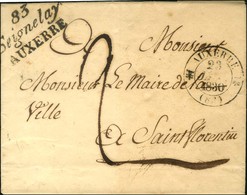 83
Seignelay
AUXERRE
AUXERRE
23
1830
(83)
2
Monsieur
Monsieur Le Maire de la
Ville
De Saint florentin